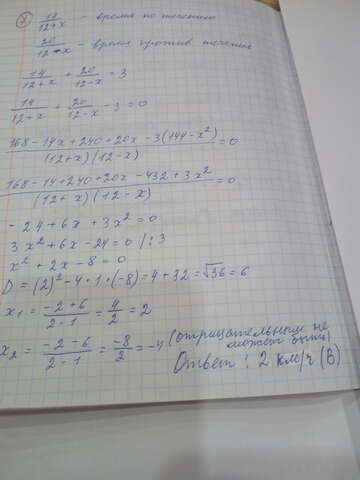 8) 18/12+x - время по течению
20/12-x - время против течения
14/12+x + 20/12-x = 3
14/12+x + 20/12-x - 3 = 0
168-14x+240+20x-3(144-x²)/(12+x)(12-x) = 0
168-14+240+20x-432+3x²/(12+x)(12-x) = 0
-24+6x+3x²=0
3x²+6x-24=0 /:3
x²+2x-8=0
D=(2)²-4·1·(-8)=4+32=√36=6
x₁ = -2+6/2-1 = 4/2 = 2
x₂ = -2-6/2-1 = -8/2 = -4 (отрицательные не может быть)
Ответ: 2 км/ч (В)